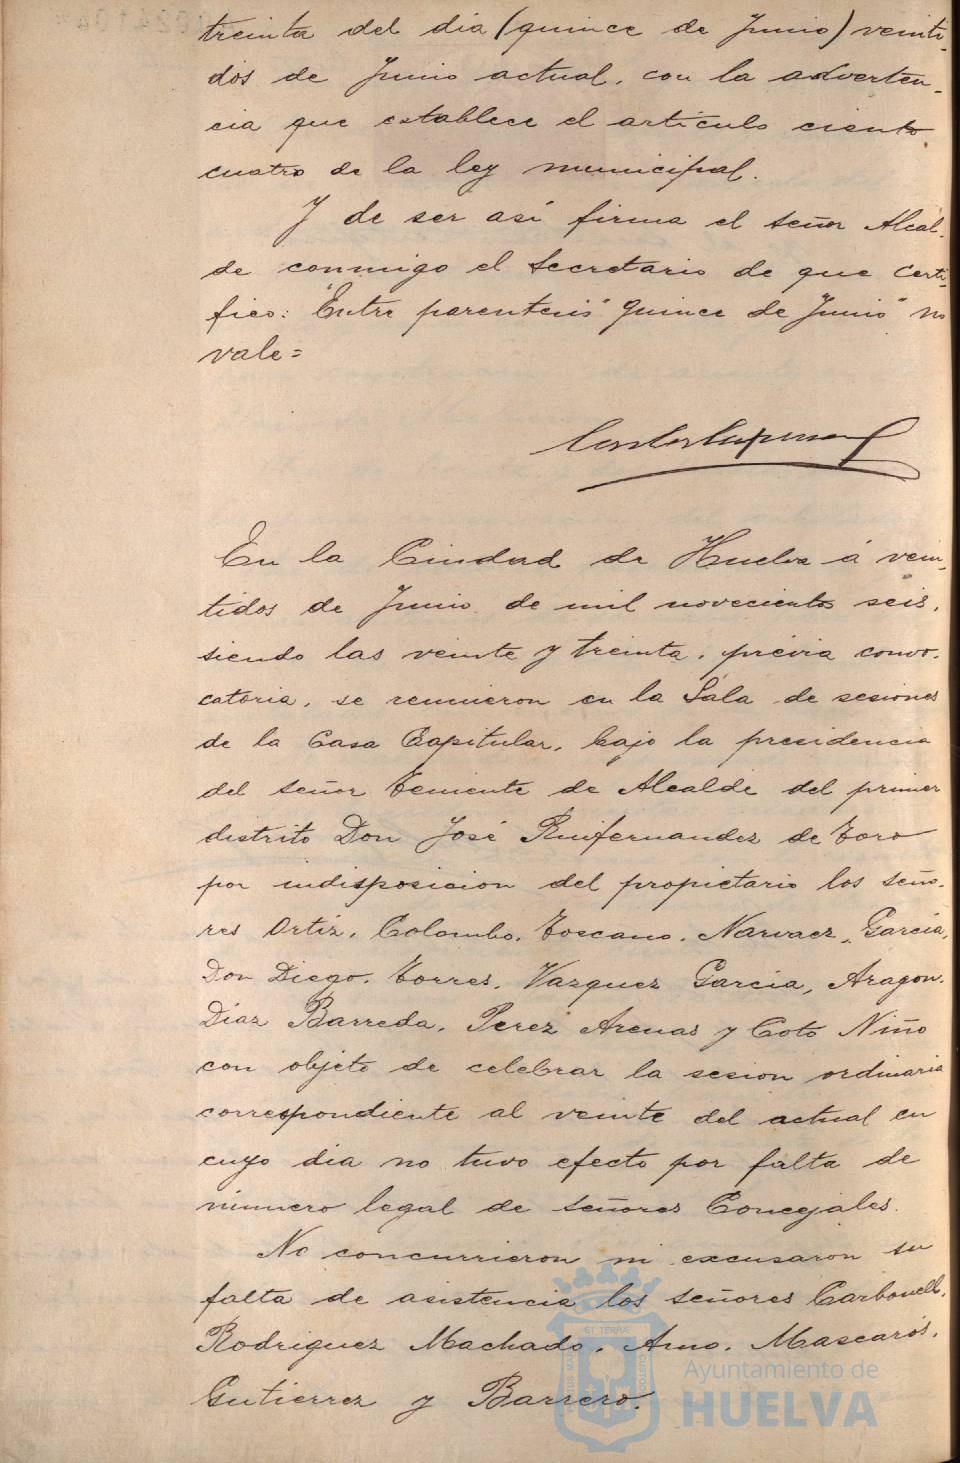 treinta del dia (quince de Junio) veinti-
dos de Junio actual, con la adverten-
cia que establece el artículo ciento
cuatro de la ley municipal.
Y de ser así firma el señor Alcal-
de conmigo el Secretario de que certi-
fico: "Entre parentesis" quince de Junio" no
vale=
En la Ciudad de Huelva á vein-
tidos de Junio de mil novecientos seis,
siendo las veinte y treinta, prévia convo-
catoria, se reunieron en la Sala de sesiones
de la Casa Capitular, bajo la presidencia
del señor Teniente de Alcalde del primer
distrito Don José Ruifernandez de Toro
por indisposicion del propietario los seño-
res Ortiz, Colombo, Toscano, Narvaez, García,
Don Diego, Torres, Vazquez García, Aragon,
Diaz Barreda, Perez Arenas y Coto Niño
con objeto de celebrar la sesion ordinaria
correspondiente al veinte del actual en
cuyo dia no tuvo efecto por falta de
número legal de señores Concejales.
No concurrieron ni excusaron su
falta de asistencia los señores Carbonell,
Rodriguez Machado, Amo, Mascarós,
Gutierrez y Barrero.
Ayuntamiento de
HUELVA